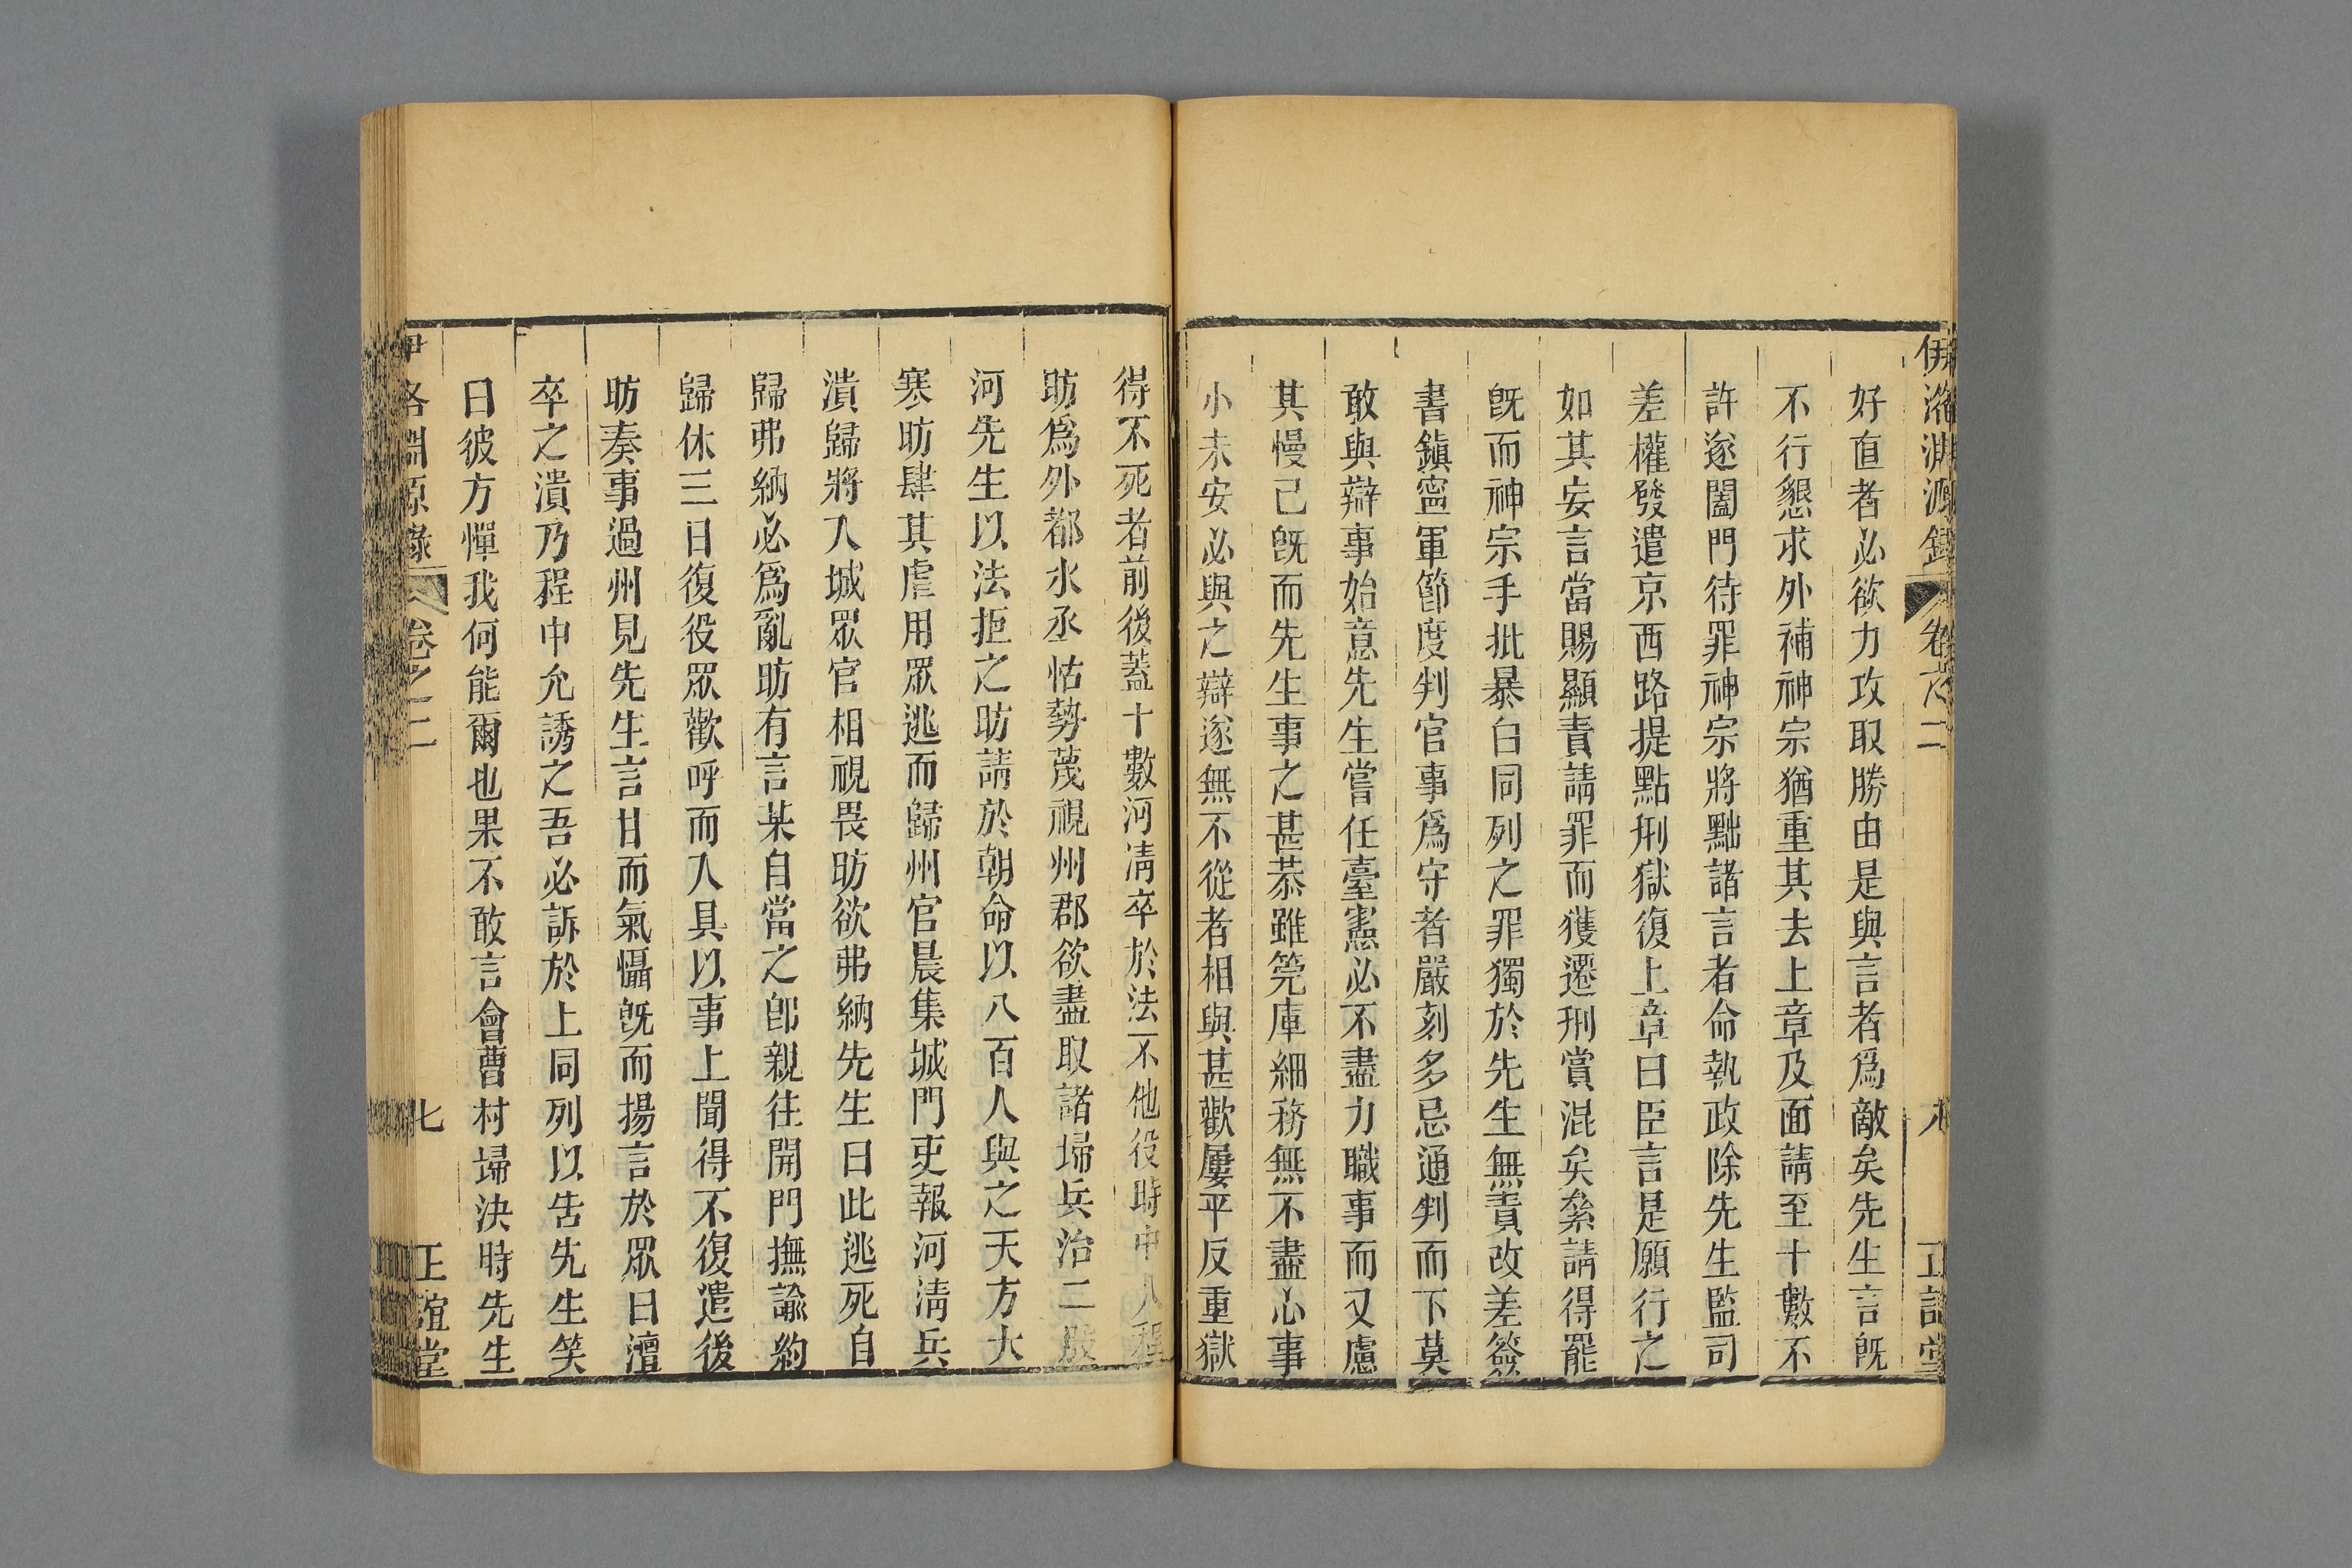 伊洛淵源錄 卷之二 六 正誼堂
好直者必欲力攻取勝由是與言者爲敵矣先生言旣
不行懇求外補神宗猶重其去上章及面請至十數不
許遂闔門待罪神宗將黜諸言者命執政除先生監司
差權發遣京西路提點刑獄復上章曰臣言是願行之
如其妄言當賜顯責請罪而獲遷刑賞混矣絫請得罷
旣而神宗手批暴白同列之罪獨於先生無責改差簽
書鎭寧軍節度判官事爲守者嚴刻多忌通判而下莫
敢與辯事始意先生嘗任臺憲必不盡力職事而又慮
其慢己旣而先生事之甚恭雖筦庫細務無不盡心事
小未安必與之辯遂無不從者相與甚歡屢平反重獄
得不死者前後蓋十數河凊卒於法不他役時中人程
昉爲外都水丞怙勢蔑視州郡欲盡取諸埽兵治二股
河先生以法拒之昉請於朝命以八百人與之天方大
寒昉肆其虐用眾逃而歸州官晨集城門吏報河淸兵
潰歸將入城眾官相視畏昉欲弗納先生曰此逃死自
歸弗納必爲亂昉有言某自當之卽親往開門撫諭約
歸休三日復役眾歡呼而入具以事上聞得不復遣後
昉奏事過州見先生言甘而氣懾旣而揚言於眾曰澶
卒之潰乃程中允誘之吾必訴於上同列以告先生笑
曰彼方憚我何能爾也果不敢言會曹村埽決時先生
伊洛淵源錄 卷之二 七 正誼堂